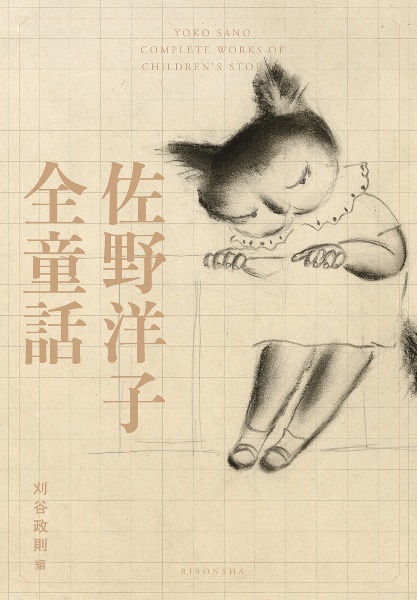 YOKO SANO
COMPLETE WORKS OF
CHILDREN'S
佐野洋子
全童話
刈谷政則 編
RIRONSHA